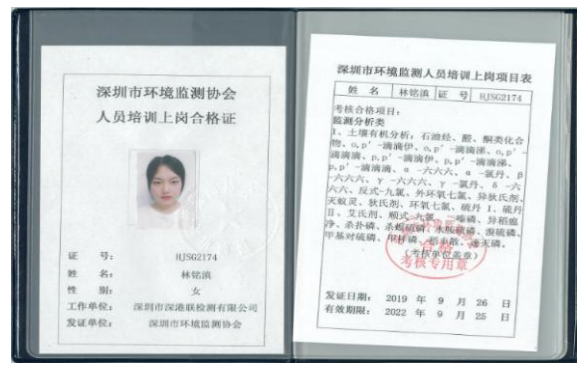 深圳市环境监测协会
人员培训上岗合格证
证 号: HJSG2174
姓 名: 林铭滇
性 别: 女
工作单位: 深圳市深港联检测有限公司
发证单位: 深圳市环境监测协会
深圳市环境监测人员培训上岗项目表
姓 名 林铭滇 证 号 HJSG2174
考核合格项目:
监测分析类
1、土壤有机分析:石油烃、醛、酮类化合
物、o,p'-滴滴伊、o,p'-滴滴涕、o,p'-
滴滴滴、p,p'-滴滴伊、p,p'-滴滴涕、
p,p'-滴滴滴、α-六六六、α-氯丹、β
-六六六、γ-六六六、γ-氯丹、δ-六
六六、反式-九氯、外环氧七氯、异狄氏剂、
灭蚁灵、狄氏剂、环氧七氯、硫丹 I、硫丹
II、艾氏剂、顺式-九氯、二嗪磷、异稻瘟
净、杀扑磷、水胺硫磷、溴硫磷、
甲基对硫磷、稻丰散、
(考核单位盖章)
合格
考核专用章
发证日期: 2019 年 9 月 26 日
有效期限: 2022 年 9 月 25 日